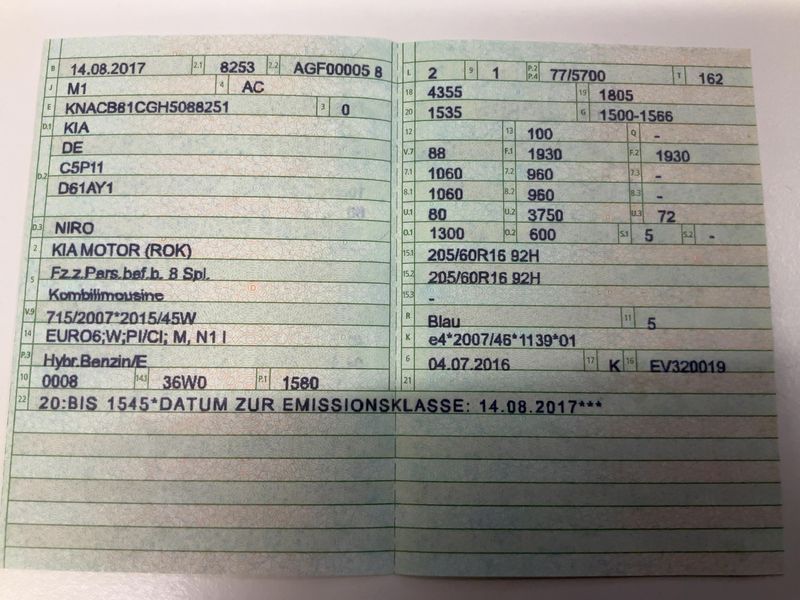 B 14.08.2017 2.1 8253 2.2 AGF00005 8
J M1 4 AC
E KNACB81CGH5088251 3 0
D.1 KIA
DE
D.2 C5P11
D61AY1
D.3 NIRO
2 KIA MOTOR (ROK)
5 Fz.z.Pers.bef.b. 8 Spl.
Kombilimousine
V.9 715/2007*2015/45W
14 EURO6;W;PI/CI; M, N1 I
P.3 Hybr.Benzin/E
10 0008 14.1 36W0 P.1 1580
22 20:BIS 1545*DATUM ZUR EMISSIONSKLASSE: 14.08.2017***
L 2 9 1 P.2 P.4 77/5700 T 162
18 4355 19 1805
20 1535 G 1500-1566
12 13 100 Q -
V.7 88 F.1 1930 F.2 1930
7.1 1060 7.2 960 7.3 -
8.1 1060 8.2 960 8.3 -
U.1 80 U.2 3750 U.3 72
O.1 1300 O.2 600 S.1 5 S.2 -
15.1 205/60R16 92H
15.2 205/60R16 92H
15.3 -
R Blau 11 5
K e4*2007/46*1139*01
6 04.07.2016 17 K 16 EV320019
21